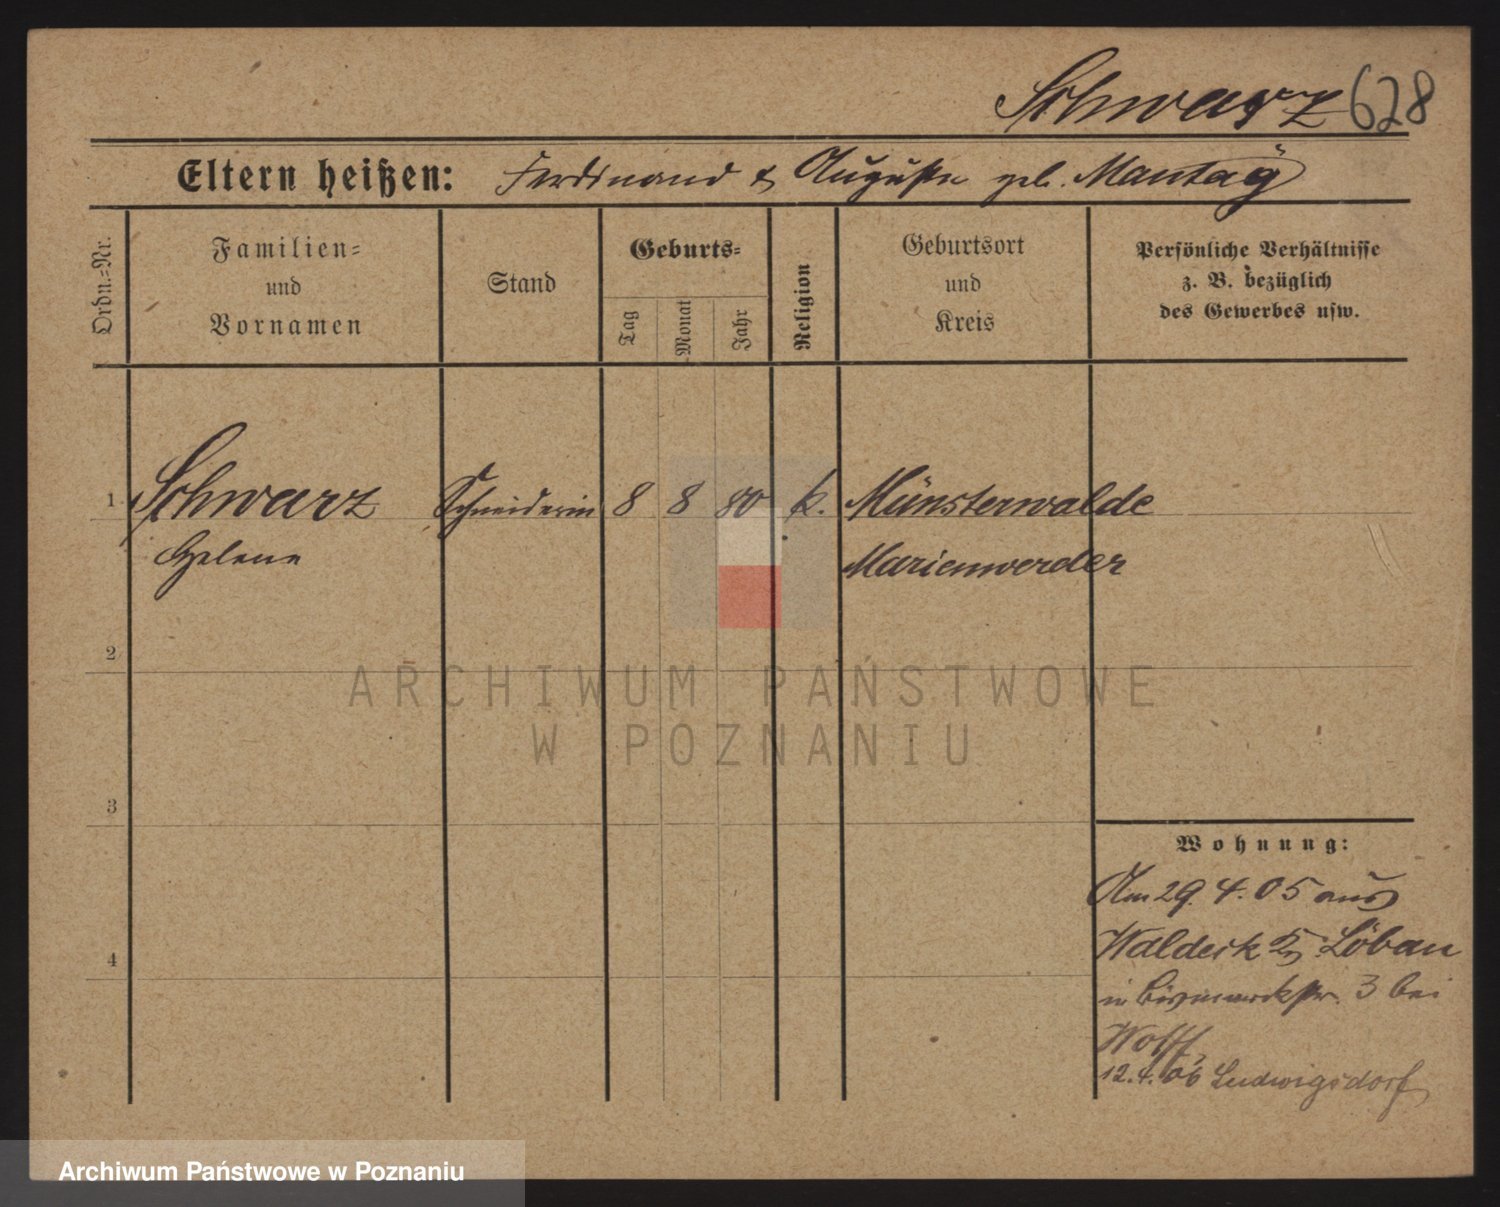 Schwarz 628
Eltern heißen: Ferdinand & Auguste geb. Mantag
Ordn.=Nr.
Familien=
und
Vornamen
Stand
Geburts=
Tag
Monat
Jahr
Religion
Geburtsort
und
Kreis
Persönliche Verhältnisse
z. B. bezüglich
des Gewerbes usw.
1 Schwarz Schneiderin 8 8 80 k. Münsterwalde
Helene Marienwerder
2
3
4
Wohnung:
Am 29. 4. 05 aus
Waldeck Löbau
in Bismarckstr. 3 bei
Wolff
12. 4. 06 Ludwigsdorf
ARCHIWUM PAŃSTWOWE
W POZNANIU
Archiwum Państwowe w Poznaniu